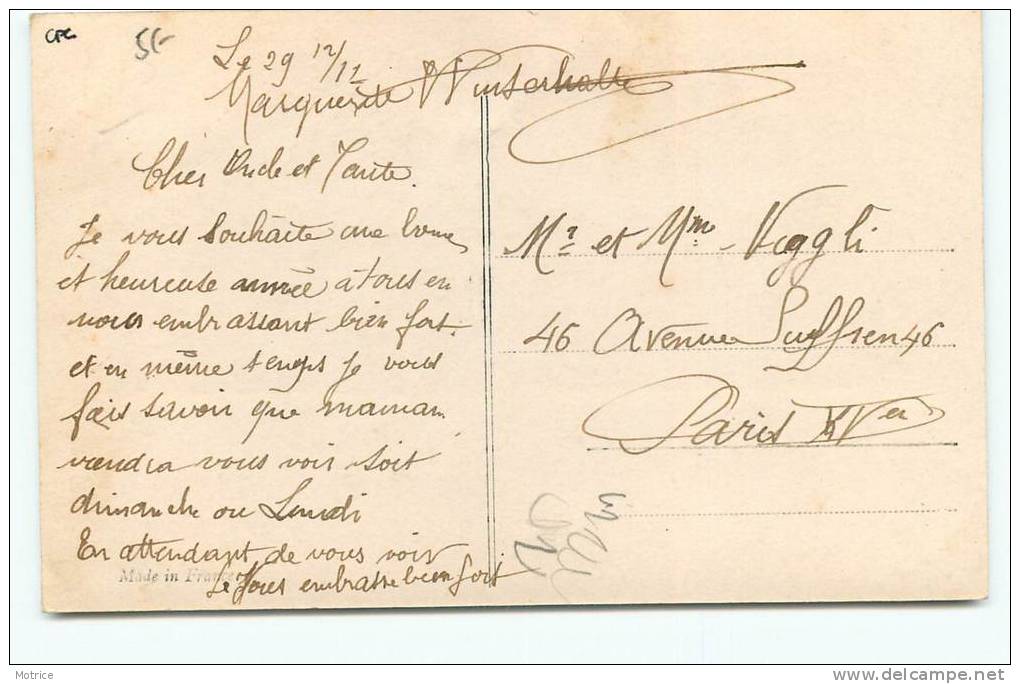 CPC
5€-
Le 29 12/11
Marguerite Winterhalte
Cher Oncle et Tante.
Je vous souhaite une bonne
et heureuse année à tous en
vous embrassant bien fort.
et en même temps je vous
fais savoir que maman
viendra vous voir soit
dimanche ou Lundi
En attendant de vous voir
Je vous embrasse bien fort
Made in France
Mr et Mme Voggli
46 Avenue Suffren 46
Paris XVer
Motrice
www.delcampe.net